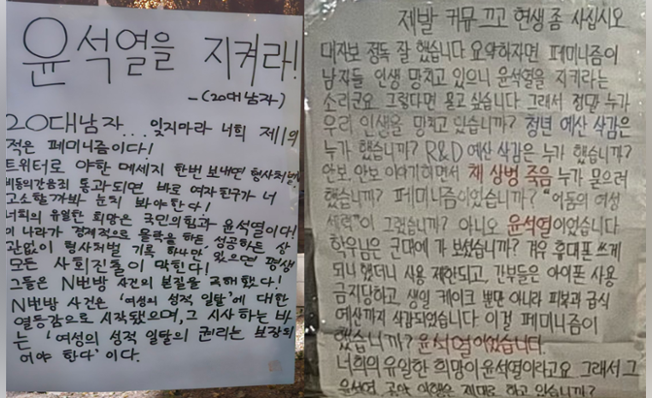 윤석열을 지켜라!
-(20대남자)
20대남자...잊지마라 너희 제1의
적은 페미니즘이다!
트위터로 야한 메세지 한번 보내면 형사처벌,
비동의간음죄 통과되면 바로 여자친구가 너
고소할까봐 눈치 봐야한다!
너희의 유일한 희망은 국민의힘과 윤석열이다!
이 나라가 경제적으로 몰락을 하든 성공하는 상
관없이 형사처벌 기록 하나만 있으면 평생
모든 사회진출이 막힌다!
그들은 N번방 사건의 본질을 곡해했다!
N번방 사건은 '여성의 성적 일탈'에 대한
열등감으로 시작됐으며, 그 시사하는 바
는 '여성의 성적 일탈의 권리는 보장되
어야 한다' 이다.
제발 커뮤 끄고 현생 좀 사십시오
대자보 정독 잘 했습니다 요약하자면 페미니즘이
남자들 인생 망치고 있으니 윤석열을 지키라는
소리군요 그렇다면 묻고 싶습니다 그래서 정말 누가
우리 인생을 망치고 있습니까? 청년 예산 삭감은
누가 했습니까? R&D 예산 삭감은 누가 했습니까?
안보 안보 이야기하면서 채 상병 죽음 누가 묻으려
했습니까? 페미니즘이었습니까? "어둠의 여성
세력"이 그랬습니까? 아니오 윤석열이었습니다
학우님은 군대에 가 보셨습니까? 겨우 휴대폰 쓰게
되나 했더니 사용 제한되고, 간부들은 아이폰 사용
금지당하고, 생일 케이크 뿐만 아니라 피복과 급식
예산까지 삭감되었습니다 이걸 페미니즘이
했습니까? 윤석열이었습니다.
너희의 유일한 희망이 윤석열이라고요 그래서 그
윤석열, 공약 이행은 제대로 하고 있습니까?